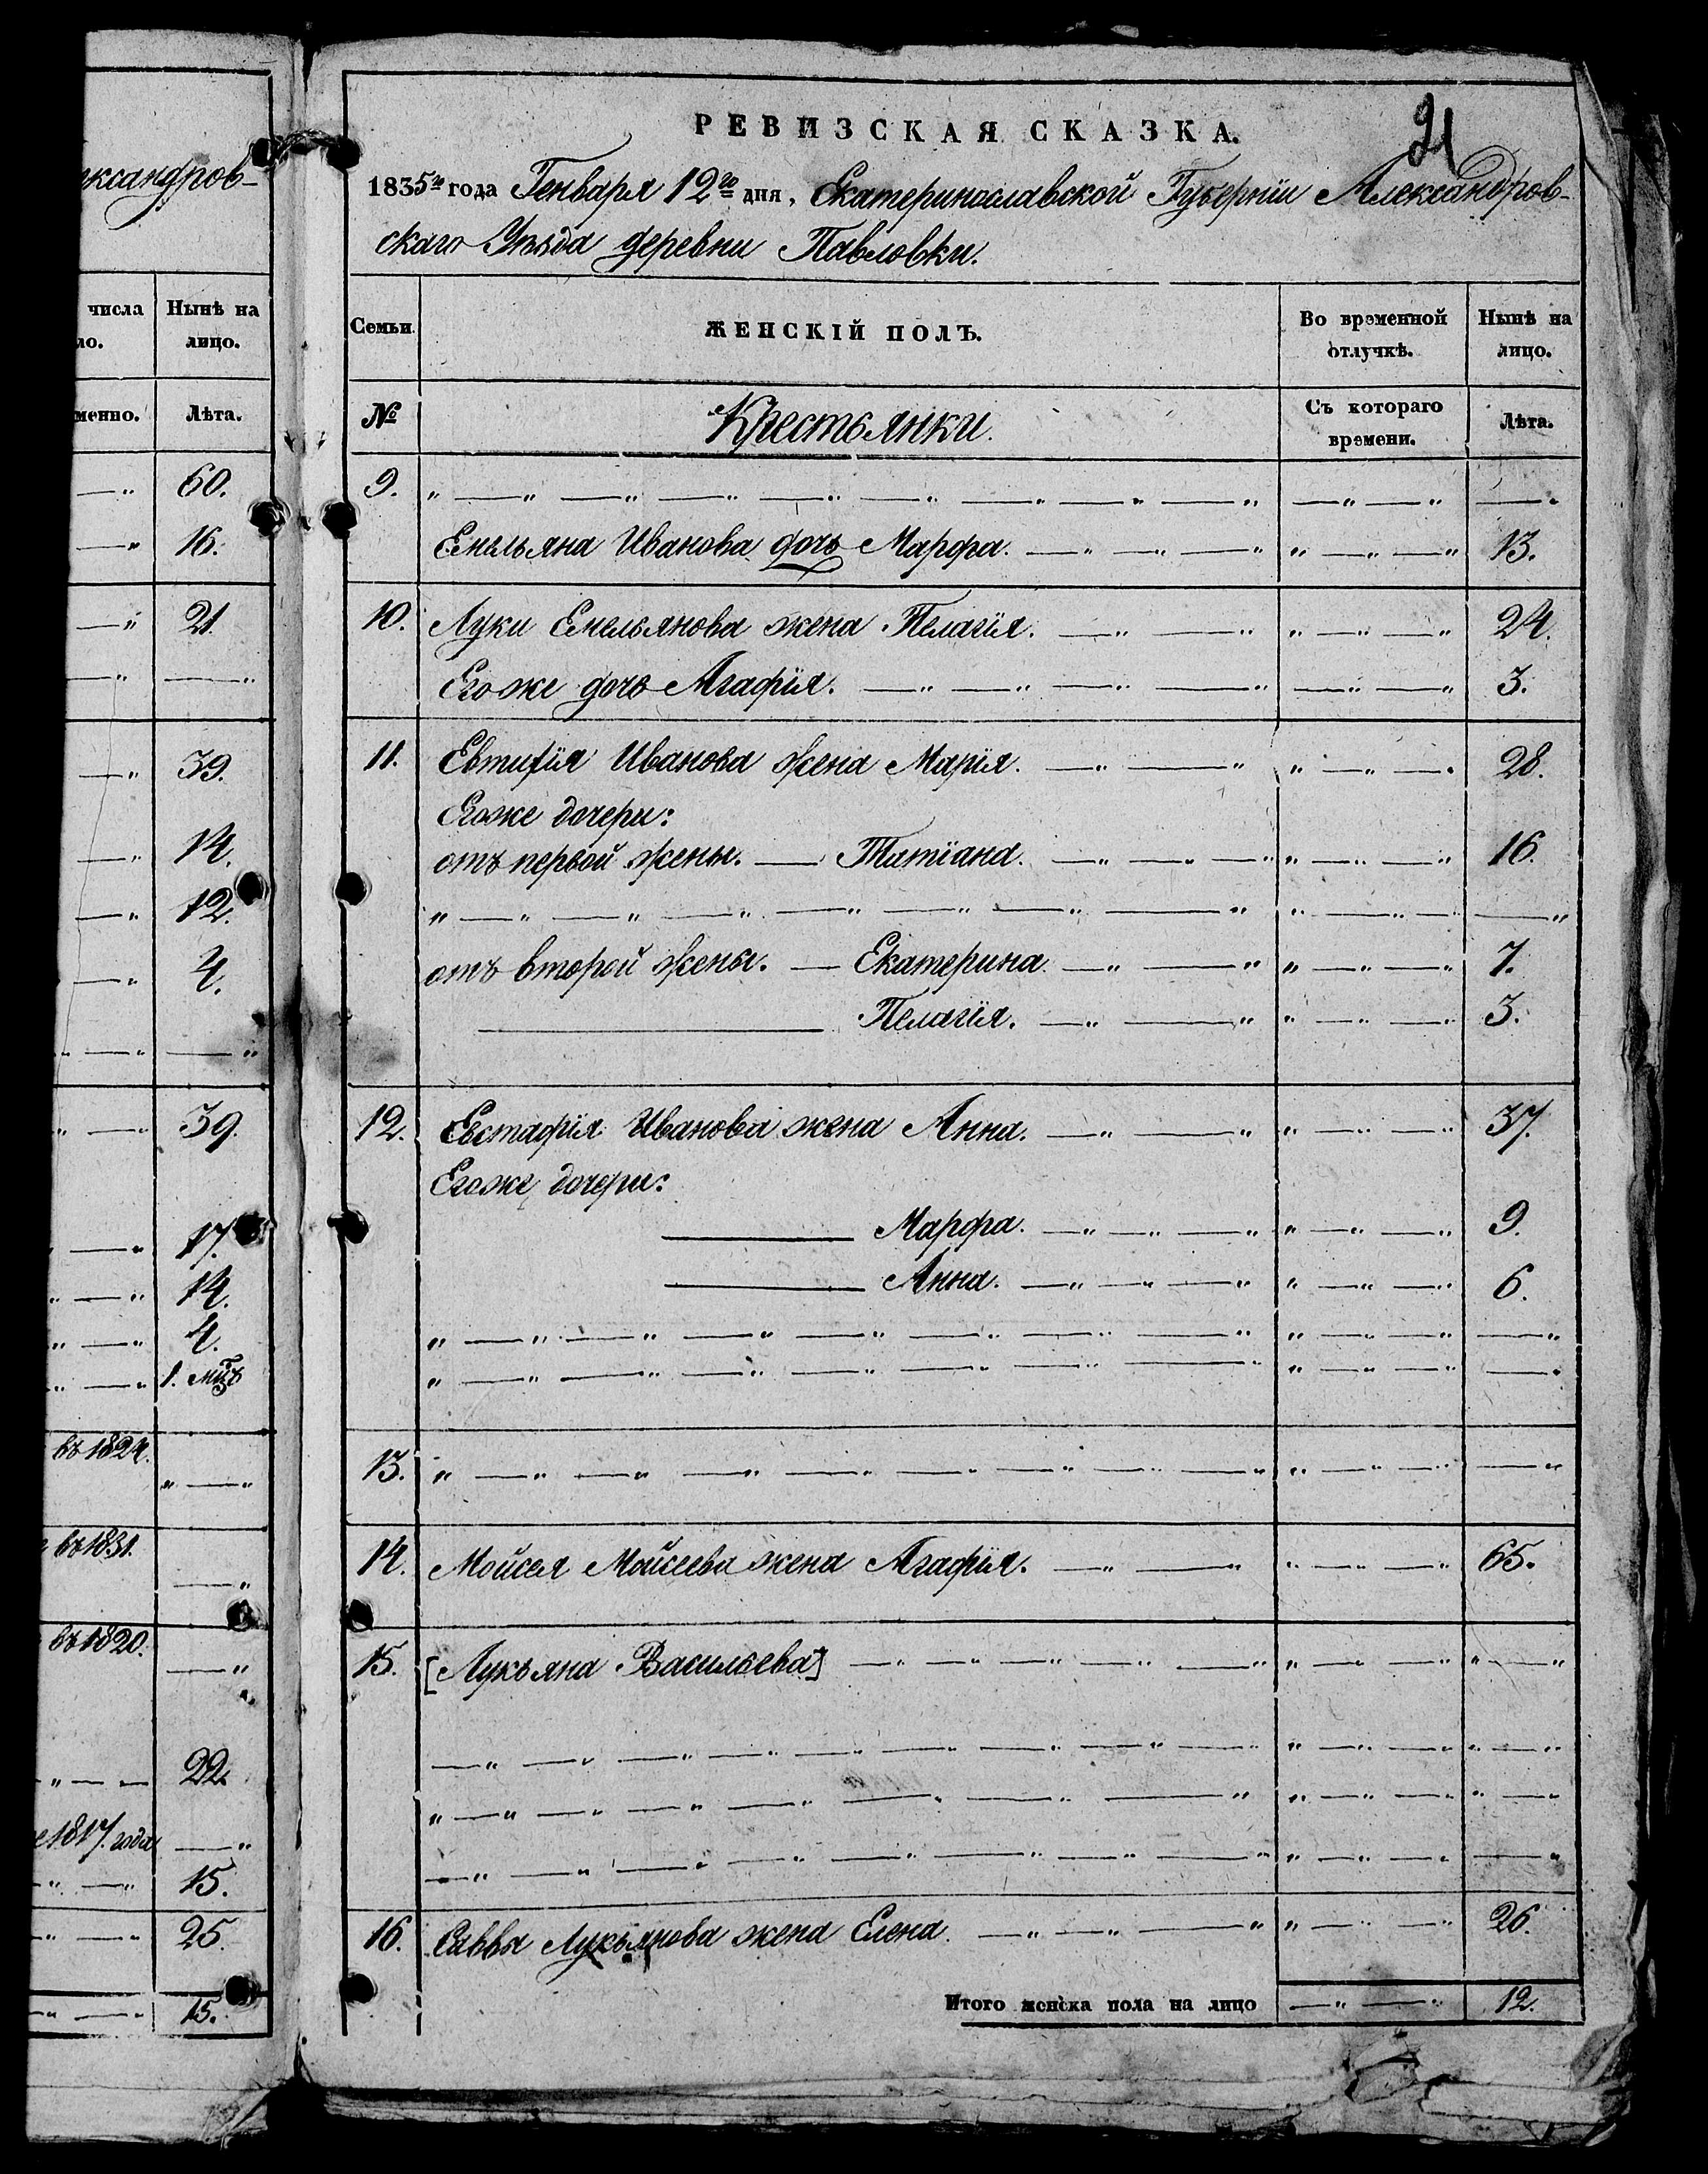 ксандров-
числа
ло.
Нынѣ на
лицо.
менно.
Лѣта.
60.
16.
21.
39.
14.
12.
4.
39.
17.
14.
4.
1. мцъ
въ 1824.
въ 1831.
въ 1820.
22.
1817. года
15.
25.
15.
21
РЕВИЗСКАЯ СКАЗКА.
1835го года Генваря 12го дня, Екатеринославской Губерніи Александров-
скаго Уѣзда деревни Павловки.
Семьи. ЖЕНСКІЙ ПОЛЪ. Во временной Нынѣ на
отлучкѣ. лицо.
№ Крестьянки. Съ котораго Лѣта.
времени.
9. „ — „ — „ — „ — „ — „ — „ — „ — „
Емельяна Иванова дочь Марфа. — „ — „ — „ „ — „ — „ 13.
10. Луки Емельянова жена Пелагія. — „ — „ „ — „ — „ 24.
Егоже дочь Агафія. — „ — „ — „ — „ — „ — „ 3.
11. Евтифія Иванова жена Марія. — „ — „ „ — „ — „ 28.
Егоже дочери:
отъ первой жены. — Татіана. — „ — „ — „ „ — „ — „ 16.
„ — „ — „ — „ — „ — „ — „ — „ „ — „ — „ — „
отъ второй жены. — Екатерина. — „ — „ „ — „ — „ 7.
Пелагія. — „ — „ „ — „ — „ 3.
12. Евстафія Иванова жена Анна. — „ — „ „ — „ — „ 37.
Егоже дочери:
— Марфа. — „ — „ — „ „ — „ — „ 9.
— Анна. — „ — „ — „ „ — „ — „ 6.
„ — „ — „ — „ — „ — „ — „ — „ „ — „ — „ — „
„ — „ — „ — „ — „ — „ — „ — „ „ — „ — „ — „
13. „ — „ — „ — „ — „ — „ — „ — „ — „ „ — „ — „ — „
14. Мойсея Мойсеева жена Агафія. — „ — „ „ — „ — „ 65.
15. [Лукьяна Васильева] — „ — „ — „ — „ — „ „ — „ — „ „ — „
— „ — „ — „ — „ — „ — „ — „ — „ — „ „ — „ — „ „ — „
„ — „ — „ — „ — „ — „ — „ — „ „ — „ — „ „ — „
— „ — „ — „ — „ — „ — „ — „ — „ „ — „ — „ — „
16. Саввы Лукьянова жена Елена. — „ — „ — „ „ — „ — „ 26.
Итого женска пола на лицо — „ — „ 12.